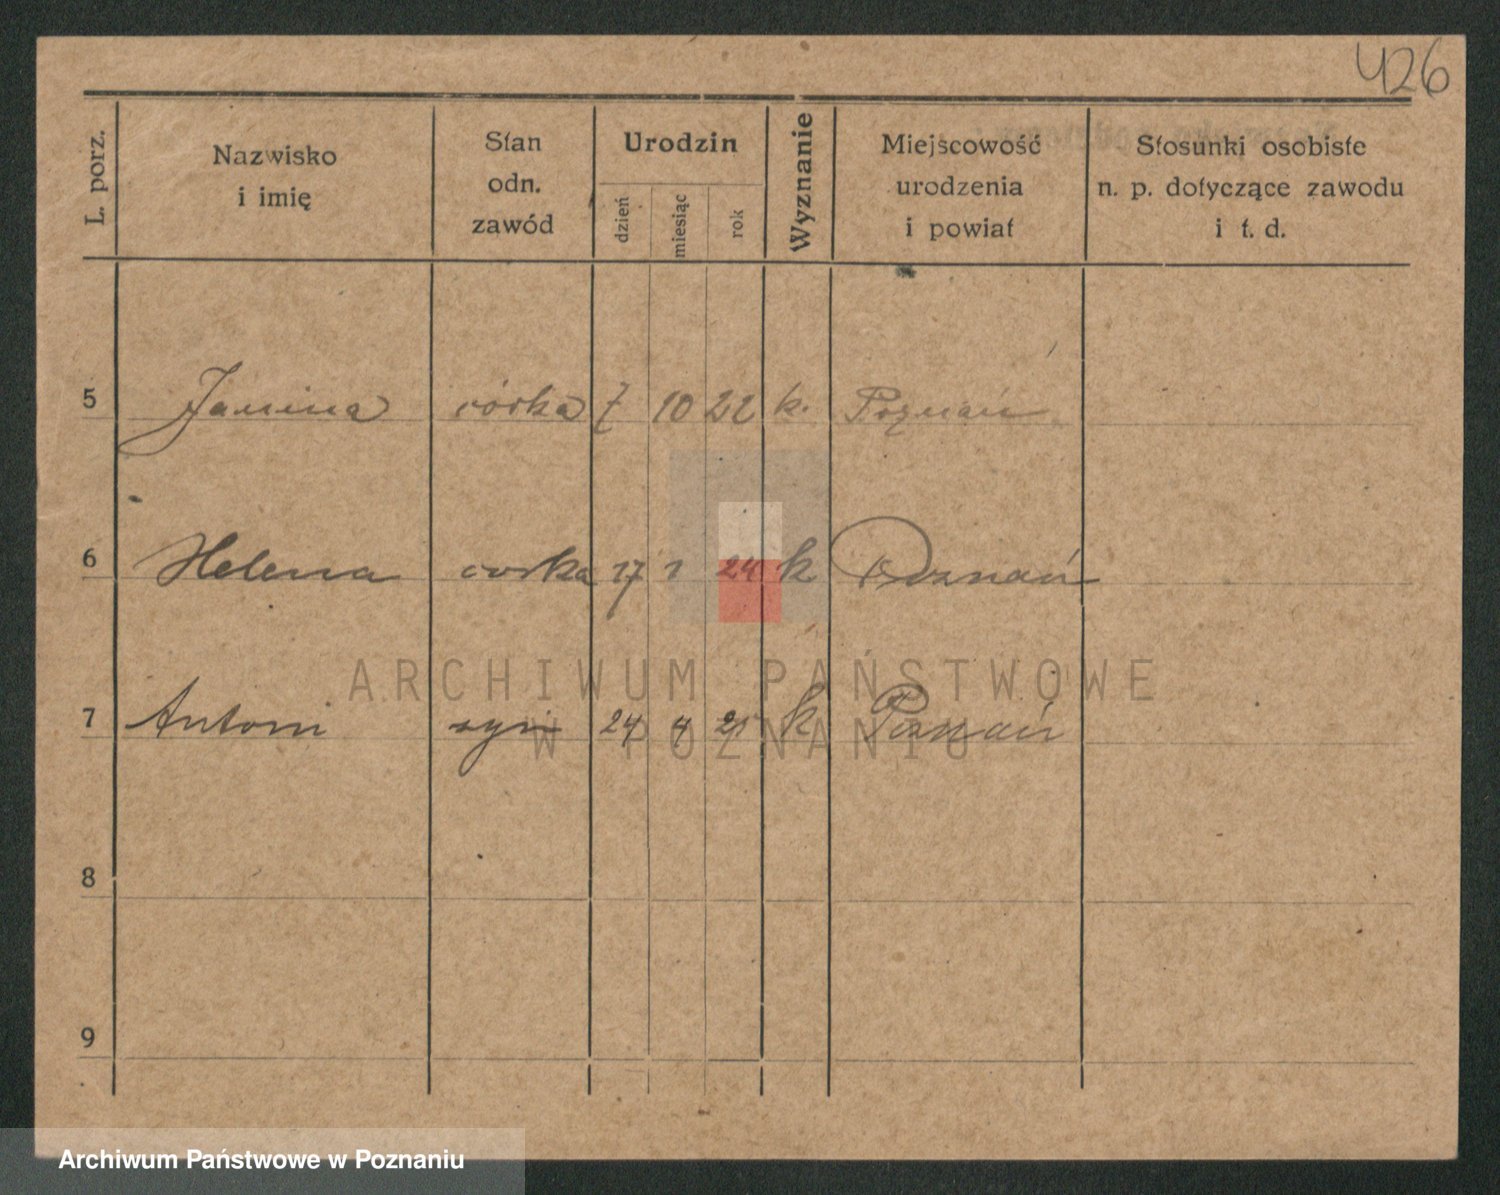 426
L. porz.
Nazwisko
i imię
Stan
odn.
zawód
Urodzin
dzień
miesiąc
rok
Wyznanie
Miejscowość
urodzenia
i powiat
Stosunki osobiste
n. p. dotyczące zawodu
i t. d.
5 Janina córka 7 10 22 k. Poznań
6 Helena corka 17 1 24 k Poznań
7 Antoni syn 24 4 k Poznań
8
9
ARCHIWUM PAŃSTWOWE
W POZNANIU
Archiwum Państwowe w Poznaniu